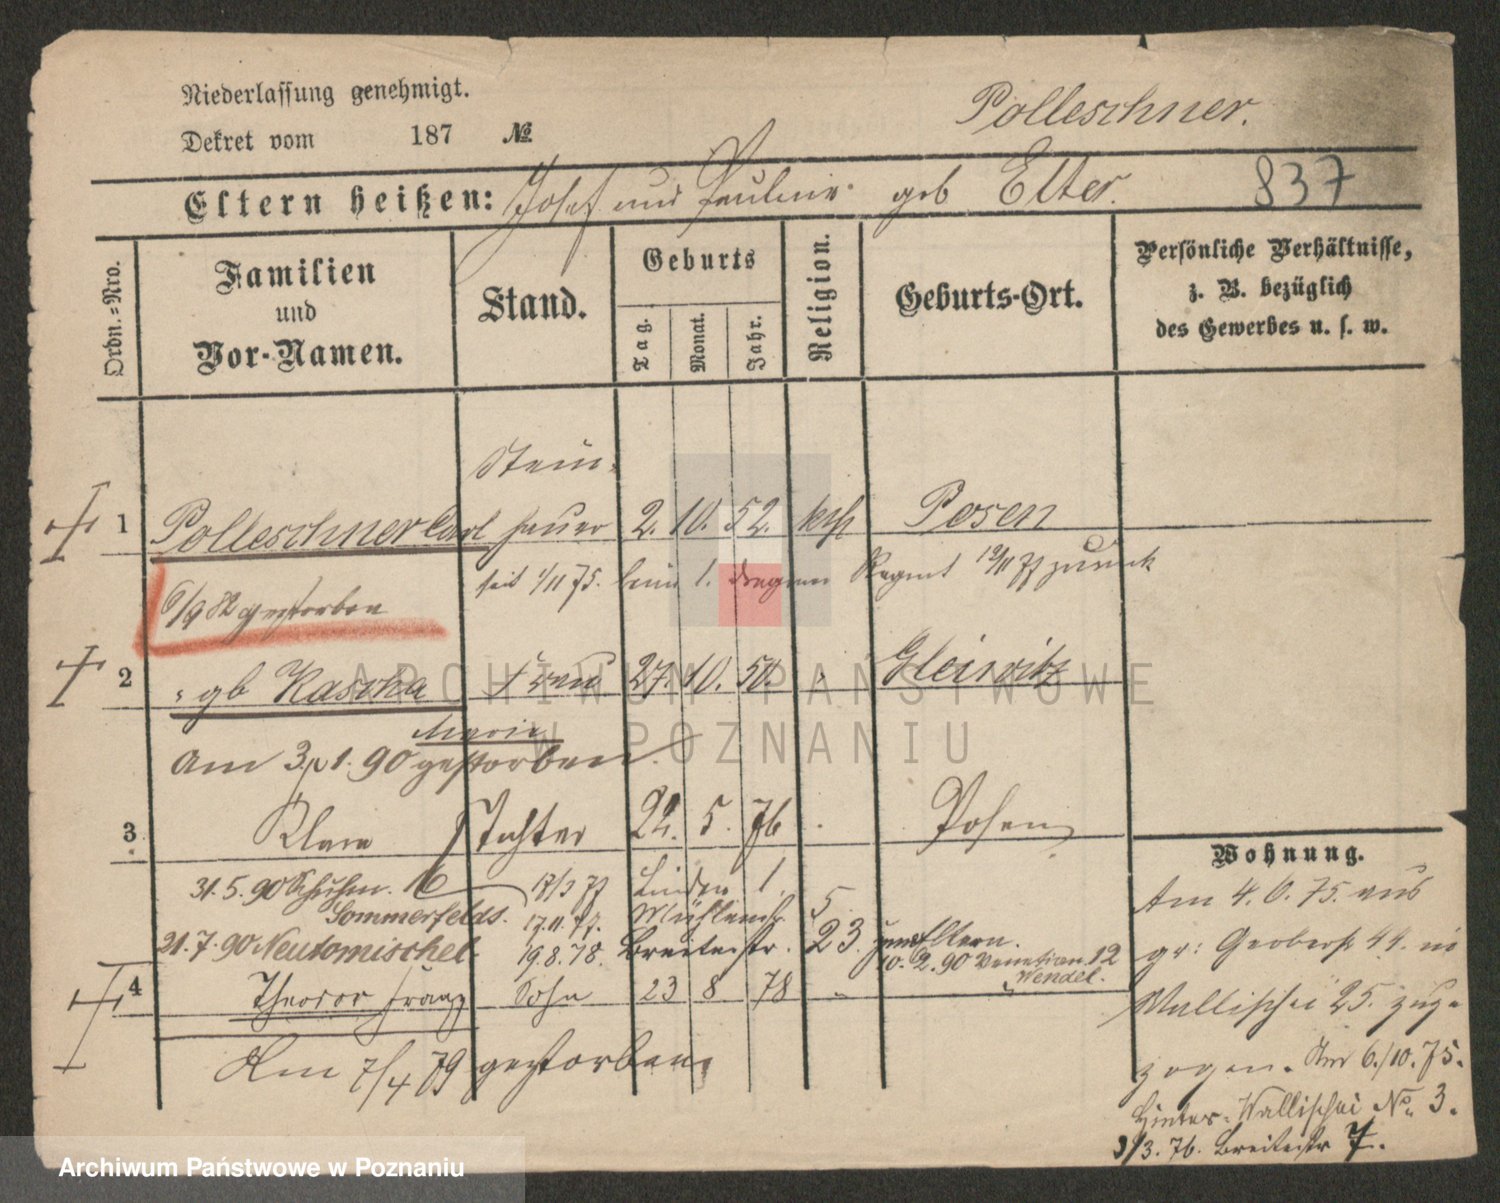 Niederlassung genehmigt.
Dekret vom 187 №
Polleschner.
Eltern heißen: Josef und Pauline geb Elter.
837
Ordn.-Nro.
Familien
und
Vor-Namen.
Stand.
Geburts
Tag.
Monat.
Jahr.
Religion.
Geburts-Ort.
Persönliche Verhältnisse,
z. B. bezüglich
des Gewerbes u. s. w.
Stein-
1 Polleschner Carl hauer 2. 10. 52. kth Posen
seit 1/11 75. beim 1. Regmt zurück
6/9 82 gestorben
2 " gb Kascha Frau 27. 10. 50. " Gleiwitz
Marie
Am 3/1. 90 gestorben.
3 Klara Tochter 22. 5. 76 . Posen
31.5.90 Schuhm. 16
Sommerfelds.
21.7.90 Neutomischel
17/3 77 Linden 1.
17.11.77. Mühlenstr. 5
19.8.78. Breitestr. 23. Eltern.
10. 2. 90 Venetian. 12
Wendel.
4 Theodor Franz Sohn 23 8 78
Am 7/4 79 gestorben.
Wohnung.
Am 4. 6. 75. aus
gr: Gerberst 44. in
Wallischei 25. zuge
zogen. Am 6./10. 75.
Hinter-Wallischei No. 3.
3/3. 76. Breitestr 7.
ARCHIWUM PAŃSTWOWE
W POZNANIU
Archiwum Państwowe w Poznaniu